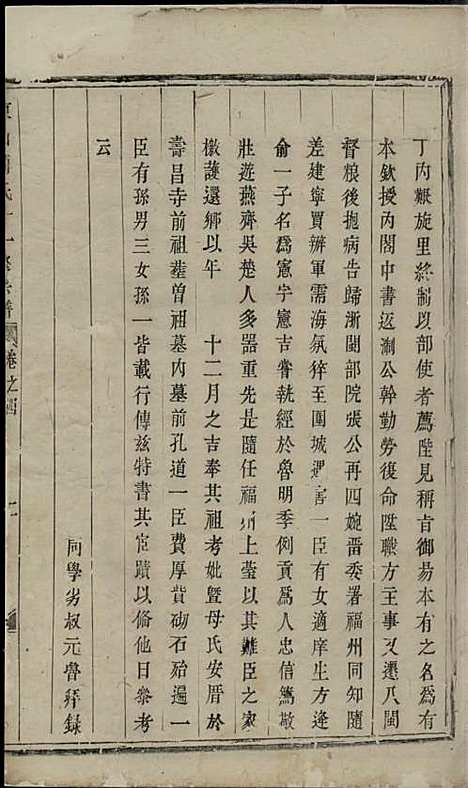 丁內艱旋里終制以部使者薦陛見稱旨御易本有之名為有
本欽授內閣中書返澗公幹勤勞復命陞職方主事又遷入閩
督糧後抱病告歸浙閩部院張公再四婉晋委署福州同知隨
差建寧買辦軍需海氛猝至圍城遇害一臣有女適庠生方逢
俞一子名為憲字憲吉嘗執經於魯明季例貢為人忠信篤敬
壯遊燕齊吳楚人多器重先是隨任福州上瑩以其難臣之家
檄護還鄉以年 十二月之吉奉其祖考妣暨母氏安厝於
壽昌寺前祖塋曾祖墓內墓前孔道一臣費厚貲砌石殆遍一
臣有孫男三女孫一皆載行傳茲特書其宦蹟以俻他日叅考
云
同學弟叔元魯拜錄
卷之四